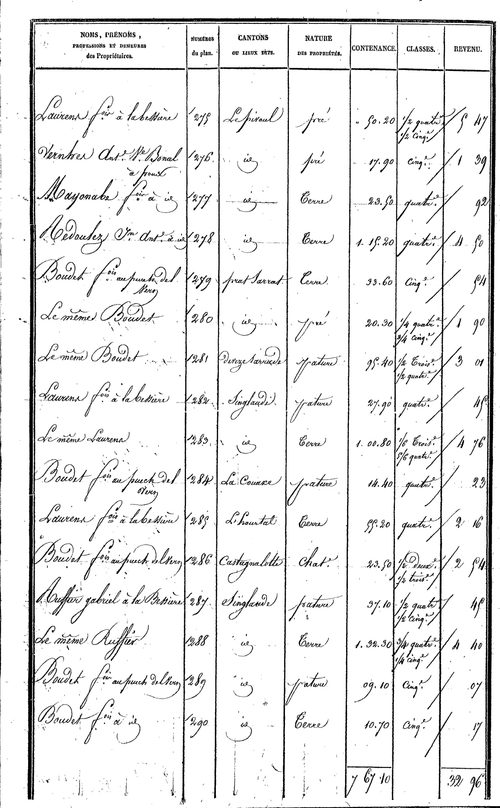 NOMS, PRÉNOMS, PROFESSIONS ET DEMEURES des Propriétaires. NUMÉROS du plan. CANTONS OU LIEUX DITS. NATURE DES PROPRIÉTÉS. CONTENANCE. CLASSES. REVENU.
Laurens f.ois à labessière 1275 Le piraul pré " 50.20 1/2 quatr.e 1/2 cinq.e 5 47
Ant.e Bonal à 1276 id pré 17.90 cinq.e 1 39
Mayonabe f.ois à id 1277 id Terre 23.50 quatr.e 92
Redoulez Ant. à id 1278 id Terre 1.15.20 quatr.e 4 50
Boudet f.ois au puech del 1279 prat Sarrat Terre 33.60 Cinq.e 54
Le même Boudet 1280 id pré 20.30 1/4 quatr.e 3/4 cinq.e 1 90
Le même Boudet 1281 pature 95.40 1/2 Trois.e 1/2 quatr.e 3 01
Laurens f.ois à la bessière 1282 Singlande pature 27.90 quatr.e 45
Le même Laurens 1283 id Terre 1.00.80 1/6 Trois.e 5/6 quatr.e 4 76
Boudet f.ois au puech del 1284 La Couaxe pature 14.40 quatr.e 23
Laurens f.ois à la bessière 1285 L'hourtal Terre 55.20 quatr.e 2 16
Boudet f.ois au puech del 1286 Castagnalotte Chat.e 23.50 1/2 deux.e 1/2 trois.e 2 54
Ruffier gabriel à la Bessière 1287 Singlande pature 37.10 1/2 quatr.e 1/2 cinq.e 45
Le même Ruffier 1288 id Terre 1.32.30 3/4 quatr.e 1/4 cinq.e 4 40
Boudet f.ois au puech del 1289 id pature 09.10 Cinq.e 07
Boudet f.ois à id 1290 id Terre 10.70 Cinq.e 17
7 67 10 32 96